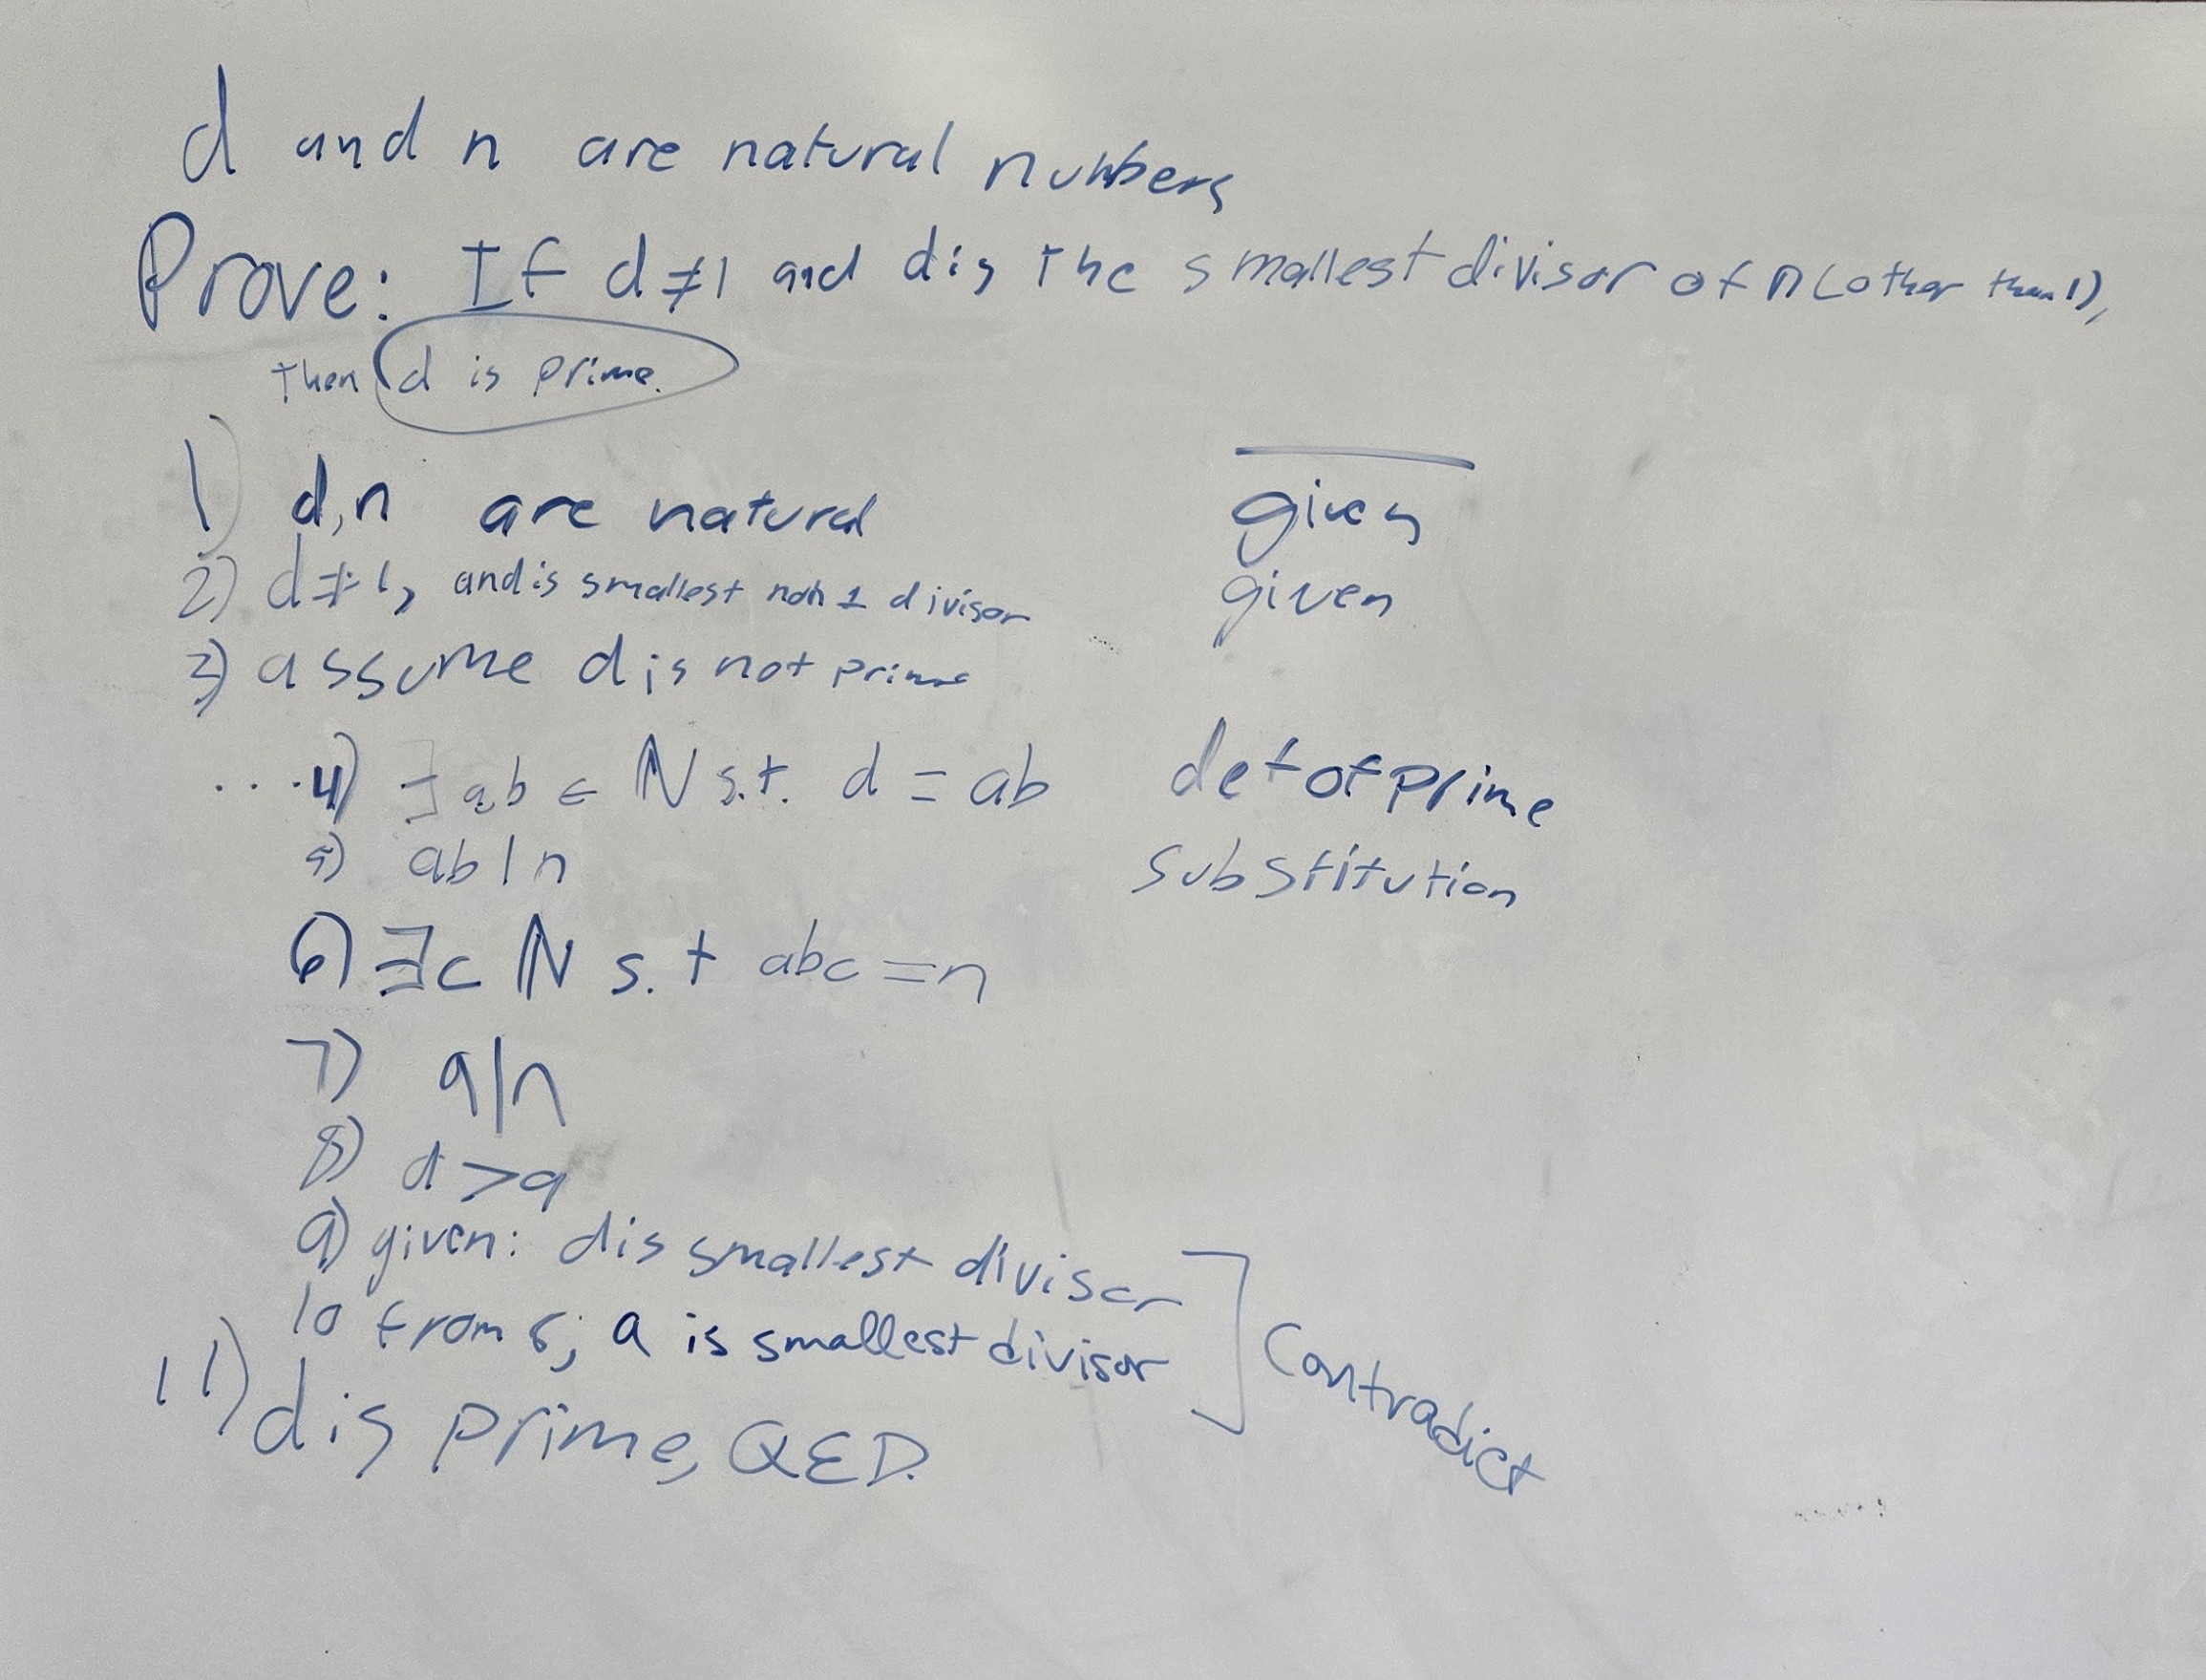 d and n are natural numbers
Prove: If d≠1 and d is the smallest divisor of n (other than 1),
then d is prime.
1) d,n are natural given
2) d≠1, and is smallest non 1 divisor given
3) assume d is not prime
....4) ∃ a,b ∈ ℕ s.t. d = ab def of prime
5) ab|n substitution
6) ∃c ℕ s.t abc=n
7) a|n
8) d>a
9) given: d is smallest divisor
10 from 8; a is smallest divisor ] Contradict
11) d is prime, QED.